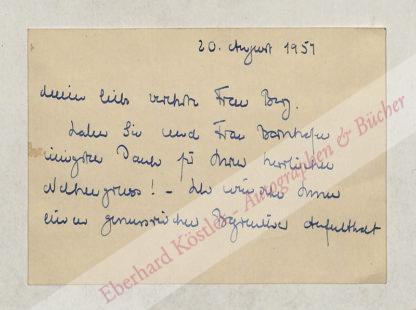 20. August 1951
Meine liebe verehrte Frau Berg.
Haben Sie und Frau
innigsten Dank für Ihren herrlichen
! – Ich wünsche Ihnen
einen genussreichen Bayreuther Aufenthalt
Eberhard Köstler - Autographen & Bücher